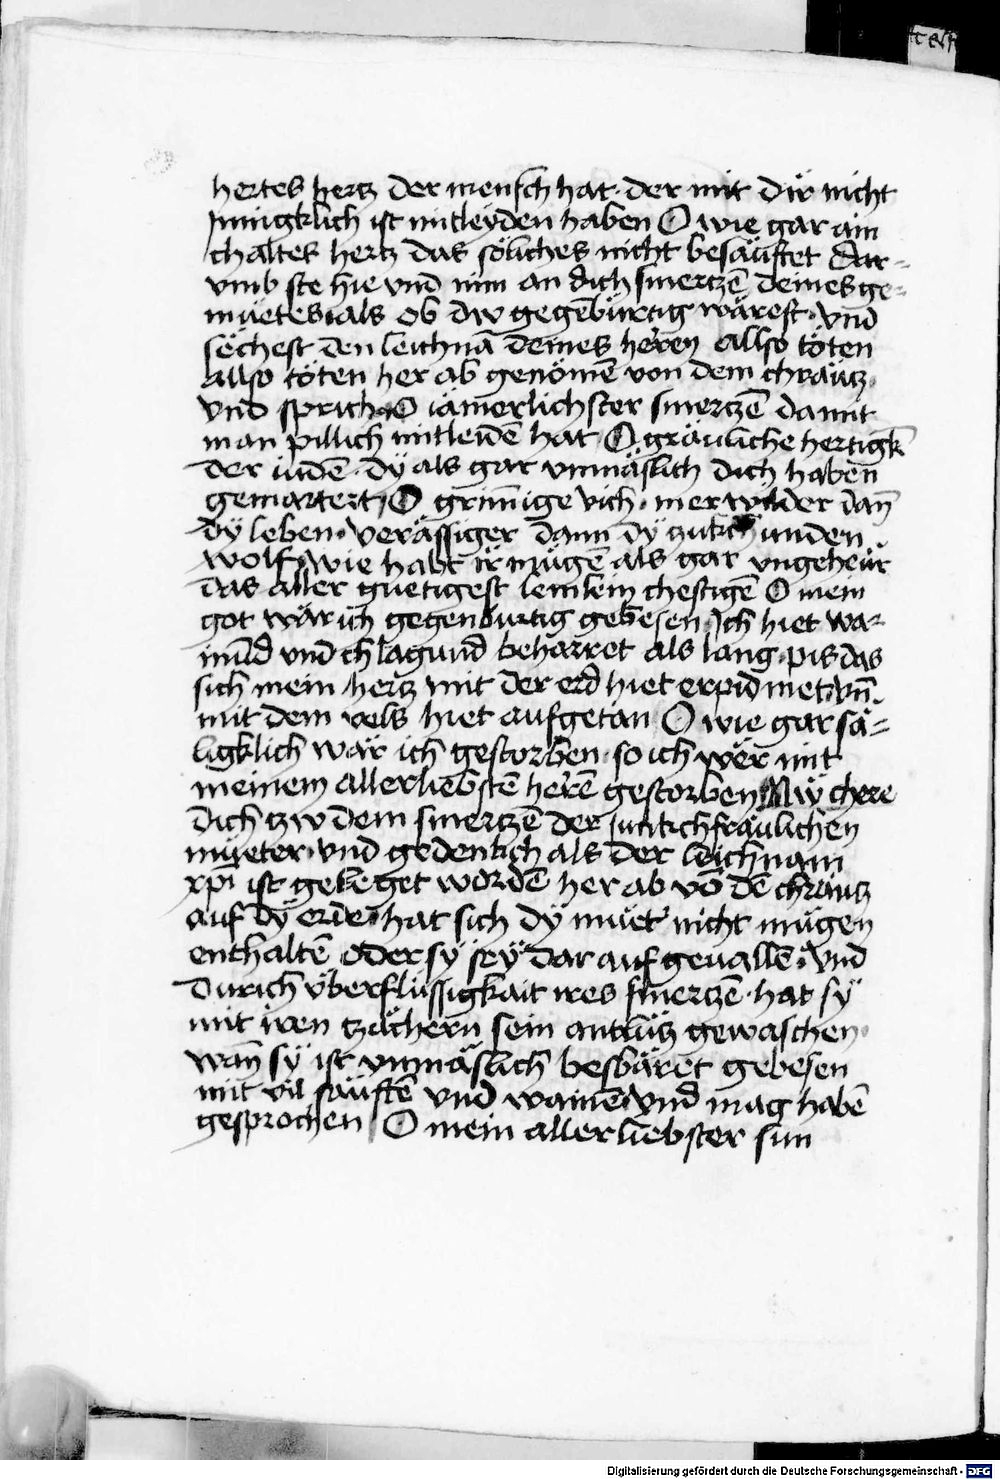 hertes hertz der mensch hat · der mit dir nicht
Jnnigklich ist mitleyden haben O wie gar ain
chaltes hertz das söliches nicht besäuftet Dar-
vmb ste hie vnd nim an dich smertzē deines ge-
müetes als ob dw gegēbürtig wärest · vnd
sëchest den leichnā deines herren allso töten
allso töten her ab genömē von dem chräutz ·
vnd sprich O iämerlichster smertzē damit
man pillich mitleidē hat O gräuliche hertigk
der iudē · dy als gar vnmäslich dich haben
gemartert / O grim̄ige vich · mer wilder dan̄
dy leben · verässiger dann dy hunden
wolf · wie habt ir mügē als gar vngeheür
das aller guetigest lemlein chestigē O mein
got wär ich gegenburtig gebesen · Jch hiet wa-
inūd vnd chlagund beharret als lang · pis das
sich mein hertz mit der erd hiet erpidmet · vn̄
mit dem vels hiet aufgetan O wie gar sä-
ligklich wär ich gestorben · so ich wër mit
meinem allerliebstē herē gestorben Nw chere
dich tzw dem smertzē der junkchfräulichen
müeter · vnd gedenkch als der leichnam
xp̄i ist geleget wordē her ab vō dē chräutz
auf dy erde · hat sich dy muet' nicht mügen
enthaltē oder sy sey dar auf geuallē · Vnd
durich vberflüssigkait ires smertzē · hat sy
mit iren tzächern sein antlütz gewaschen ·
wan̄ sy ist vnmäslich besbäret gebesen
mit vil säuftē vnd wainē · vnd mag habē
gesprochen / O mein allerliebster sun
Digitalisierung gefördert durch die Deutsche Forschungsgemeinschaft - DFG